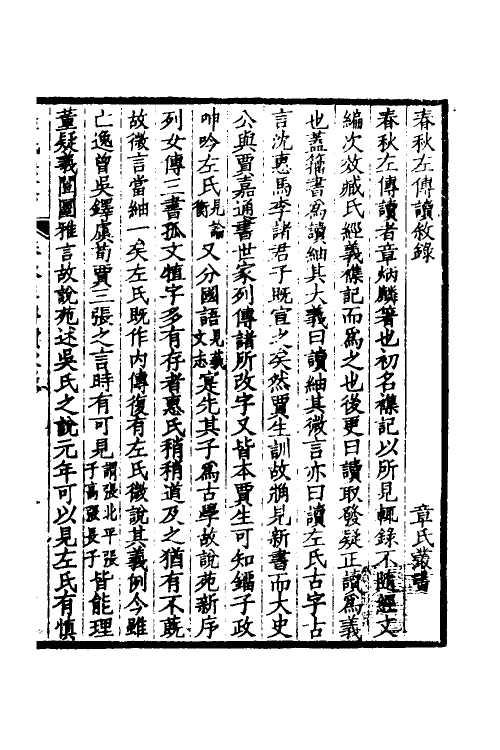 春秋左傳讀敘錄　章氏叢書
春秋左傳讀者章炳麟著也初名襍記以所見輒錄不隨經文
編次效臧氏經義襍記而為之也後更曰讀取發疑正讀為義
也蓋籒書為讀紬其大義曰讀紬其微言亦曰讀左氏古字古
言沈惠馬李諸君子既宣之矣然賈生訓故觕見新書而大史
公與賈嘉通書世家列傳諸所改字又皆本賈生可知鎦子政
呻吟左氏見論衡又分國語見蓺文志寔先其子為古學故說苑新序
列女傳三書孤文犆字多有存者惠氏稍稍道及之猶有不蔇
故微言當紬一矣左氏既作內傳復有左氏微說其義例今雖
亡逸曾吳鐸虞荀賈三張之言時有可見謂張北平張子高張長子皆能理
董疑義闓圛雅言故說苑述吳氏之說元年可以見左氏有慎